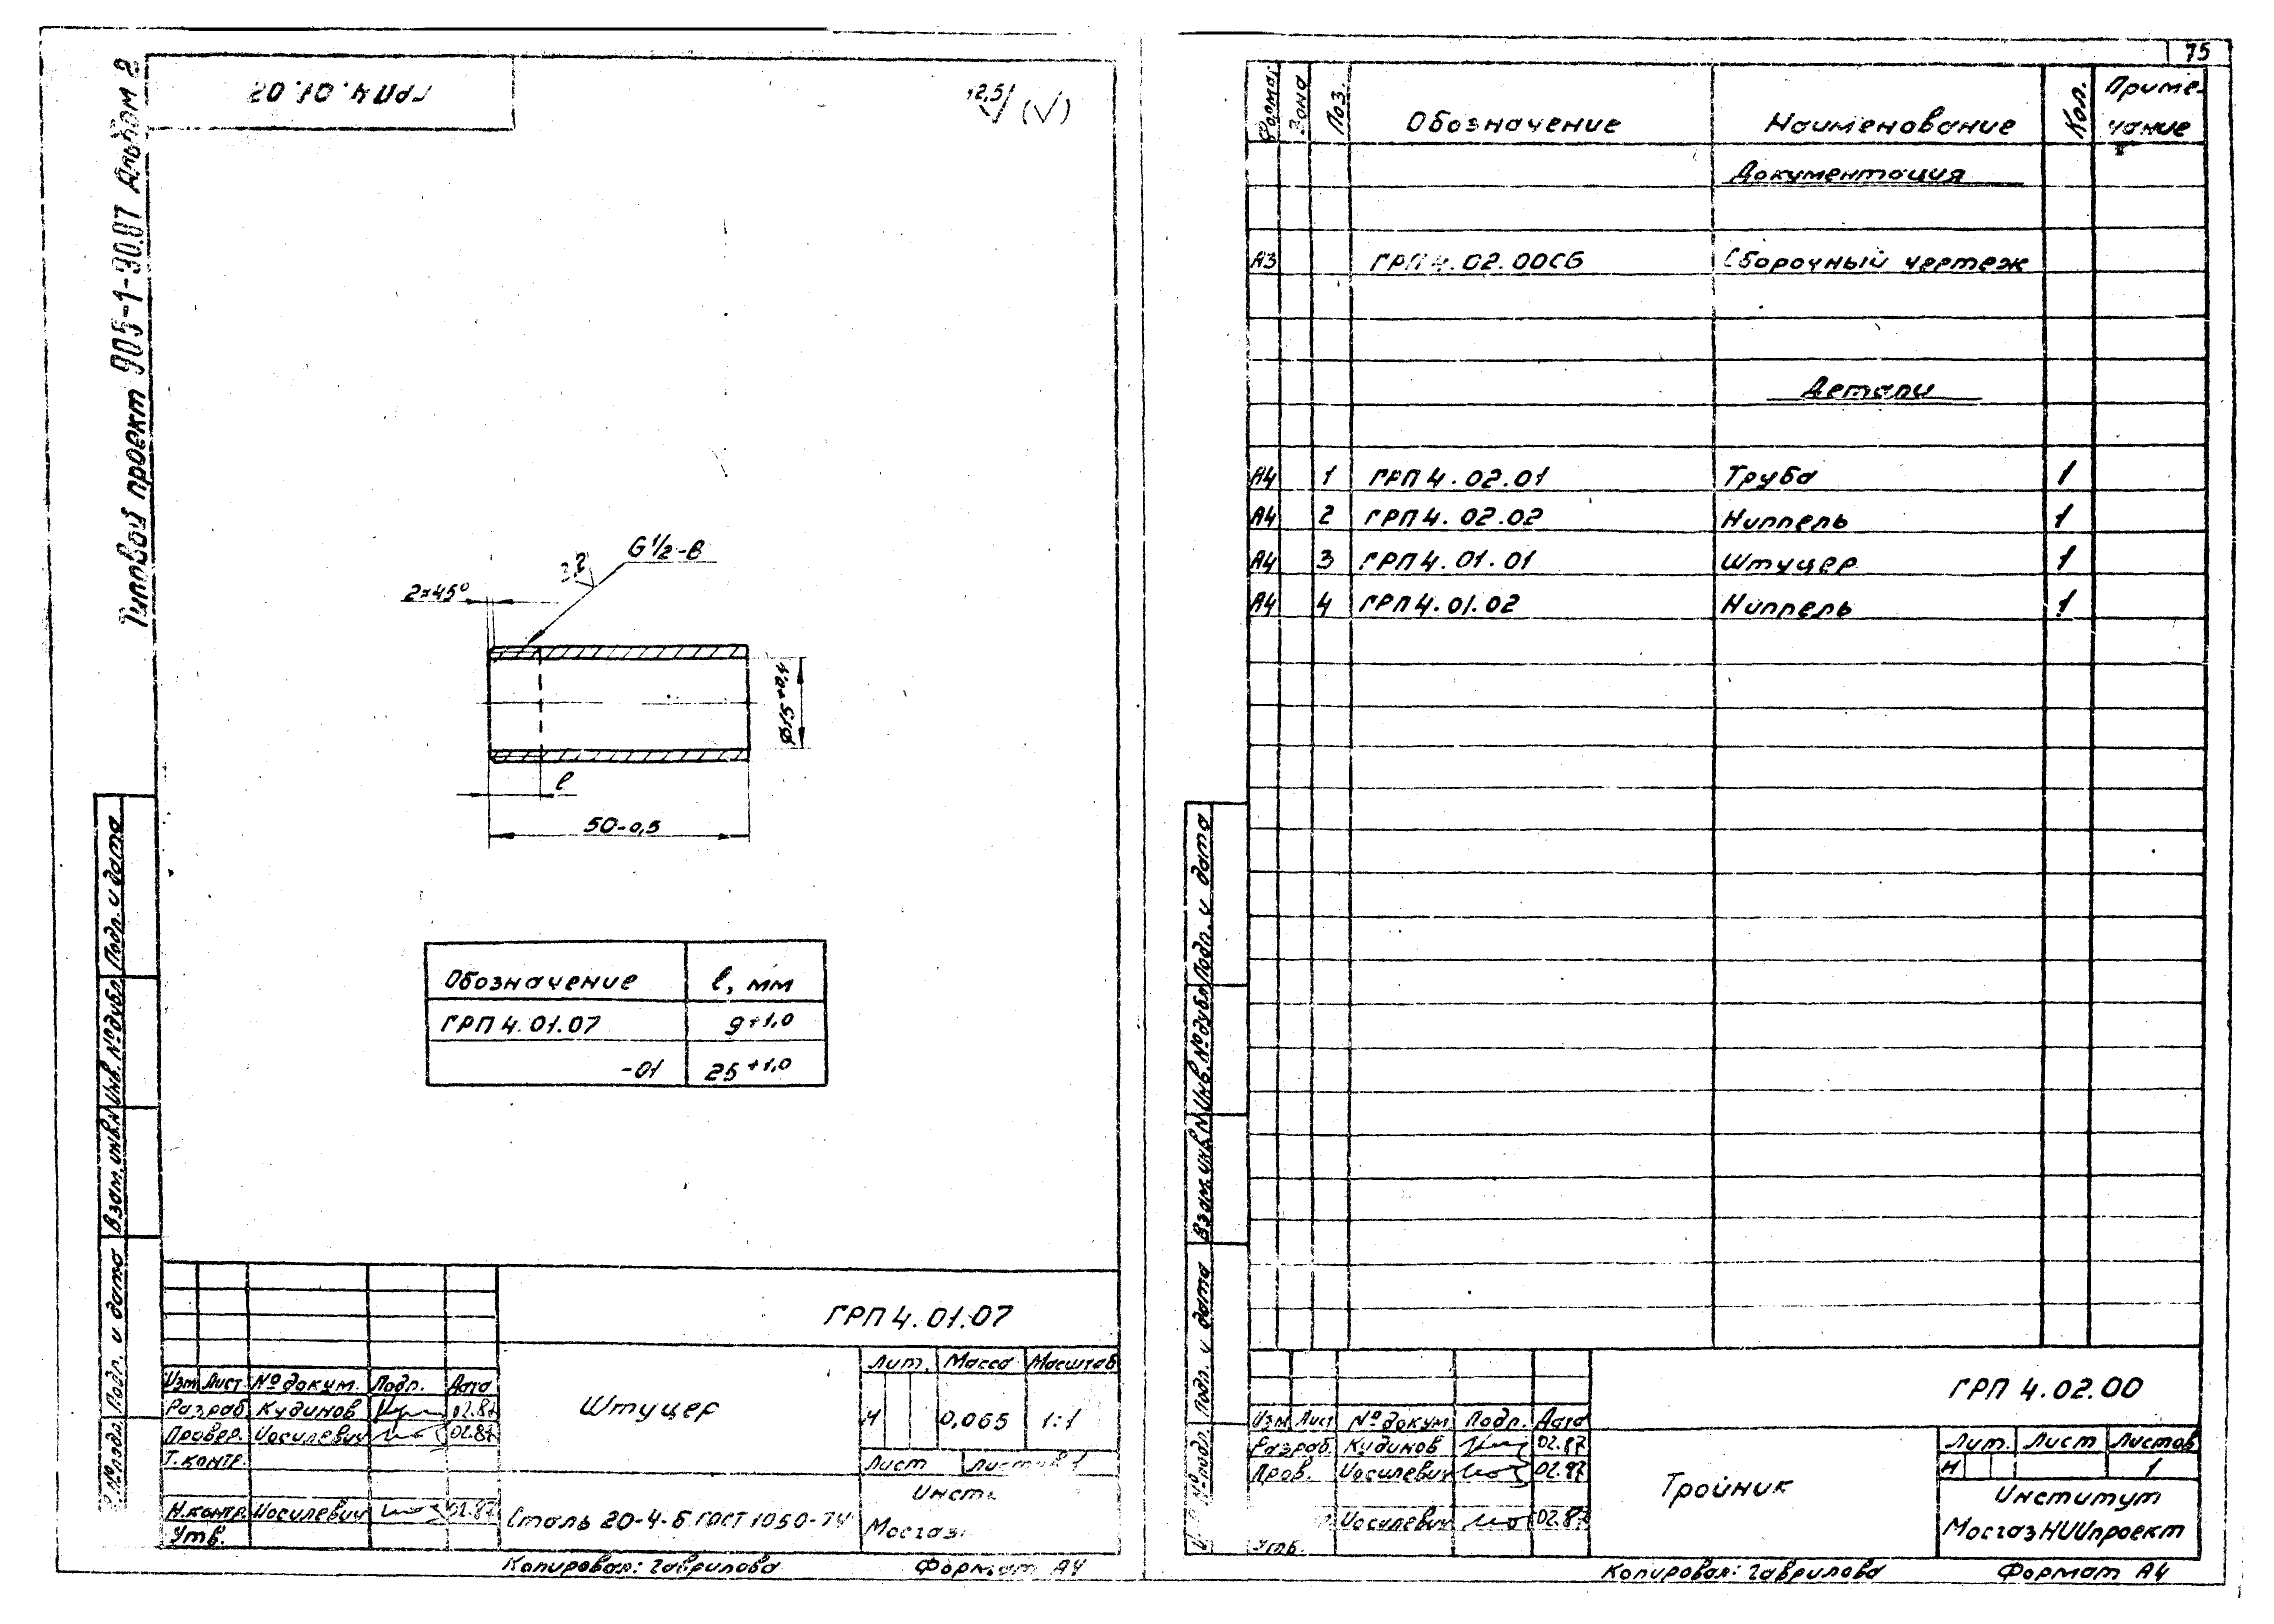 Типовой проект 905-1-30.87 Альбом 2
ГРП 4.01.02
12,5/ (√)
G 1/2-В
3,2
2×45°
Ø15+0,4
l
50-0,5
Обозначение l, мм
ГРП 4.01.07 9+1,0
-01 25+1,0
Подп. и дата
Инв. № дубл.
Взам. инв. №
Подп. и дата
№ подл.
ГРП 4.01.07
Изм Лист № докум. Подп. Дата
Разраб. Кудинов 02.87
Провер. Иосилевич 02.87
Т. контр.
Н. контр. Иосилевич 02.87
Утв.
Штуцер
Лит. Масса Масштаб
И 0,065 1:1
Лист Листов 1
Сталь 20-4-Б ГОСТ 1050-74
Инст
Мосгаз
Копировал: Гаврилова Формат А4
75
Формат Зона Поз. Обозначение Наименование Кол. Приме-
чание
Документация
А3 ГРП 4.02.00СБ Сборочный чертеж
Детали
А4 1 ГРП 4.02.01 Труба 1
А4 2 ГРП 4.02.02 Ниппель 1
А4 3 ГРП 4.01.01 Штуцер 1
А4 4 ГРП 4.01.02 Ниппель 1
Подп. и дата
Инв. № дубл.
Взам. инв. №
Подп. и дата
№ подл.
ГРП 4.02.00
Изм Лист № докум Подп. Дата
Разраб. Кудинов 02.87
Пров. Иосилевич 02.87
Иосилевич 02.87
Утв.
Тройник
Лит. Лист Листов
И 1
Институт
МосгазНИИпроект
Копировал: Гаврилова Формат А4